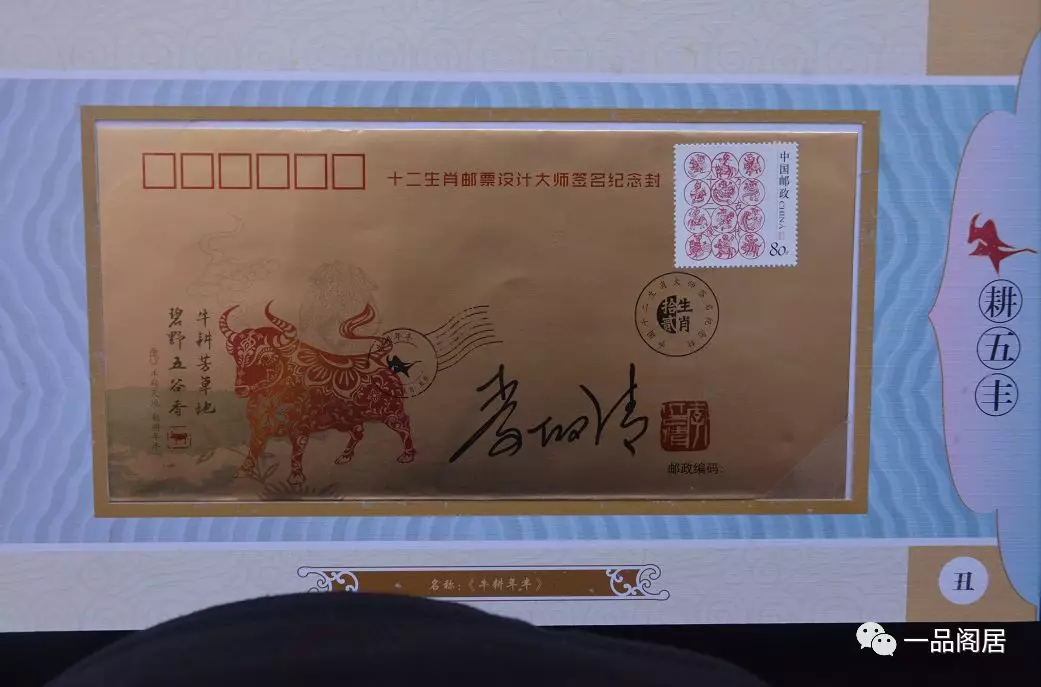 十二生肖邮票设计大师签名纪念封
中国邮政
CHINA
80分
拾贰
生肖
牛耕芳草地
碧野五谷香
邮政编码：
耕五丰
名称：《牛耕年丰》
丑
一品阁居